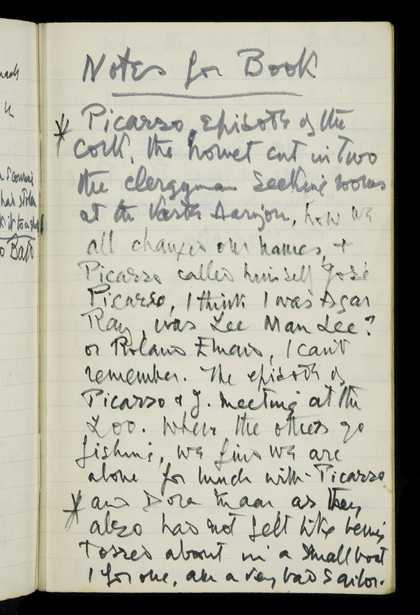 Notes for Book
* Picasso, episode of the
cork, the hornet cut in two
the clergyman seeking rooms
at the Vaste Horizon, how we
all changed our names, +
Picasso called himself José
Picasso, I think I was Agar
Ray, was Lee Man Lee?
or Roland Eluard, I can't
remember. The episode of
Picasso & J. meeting at the
Zoo. Where the others go
fishing, we find we are
alone for lunch with Picasso
* and Dora Maar as they
also had not felt like being
tossed about in a small boat
I for one, am a very bad sailor.